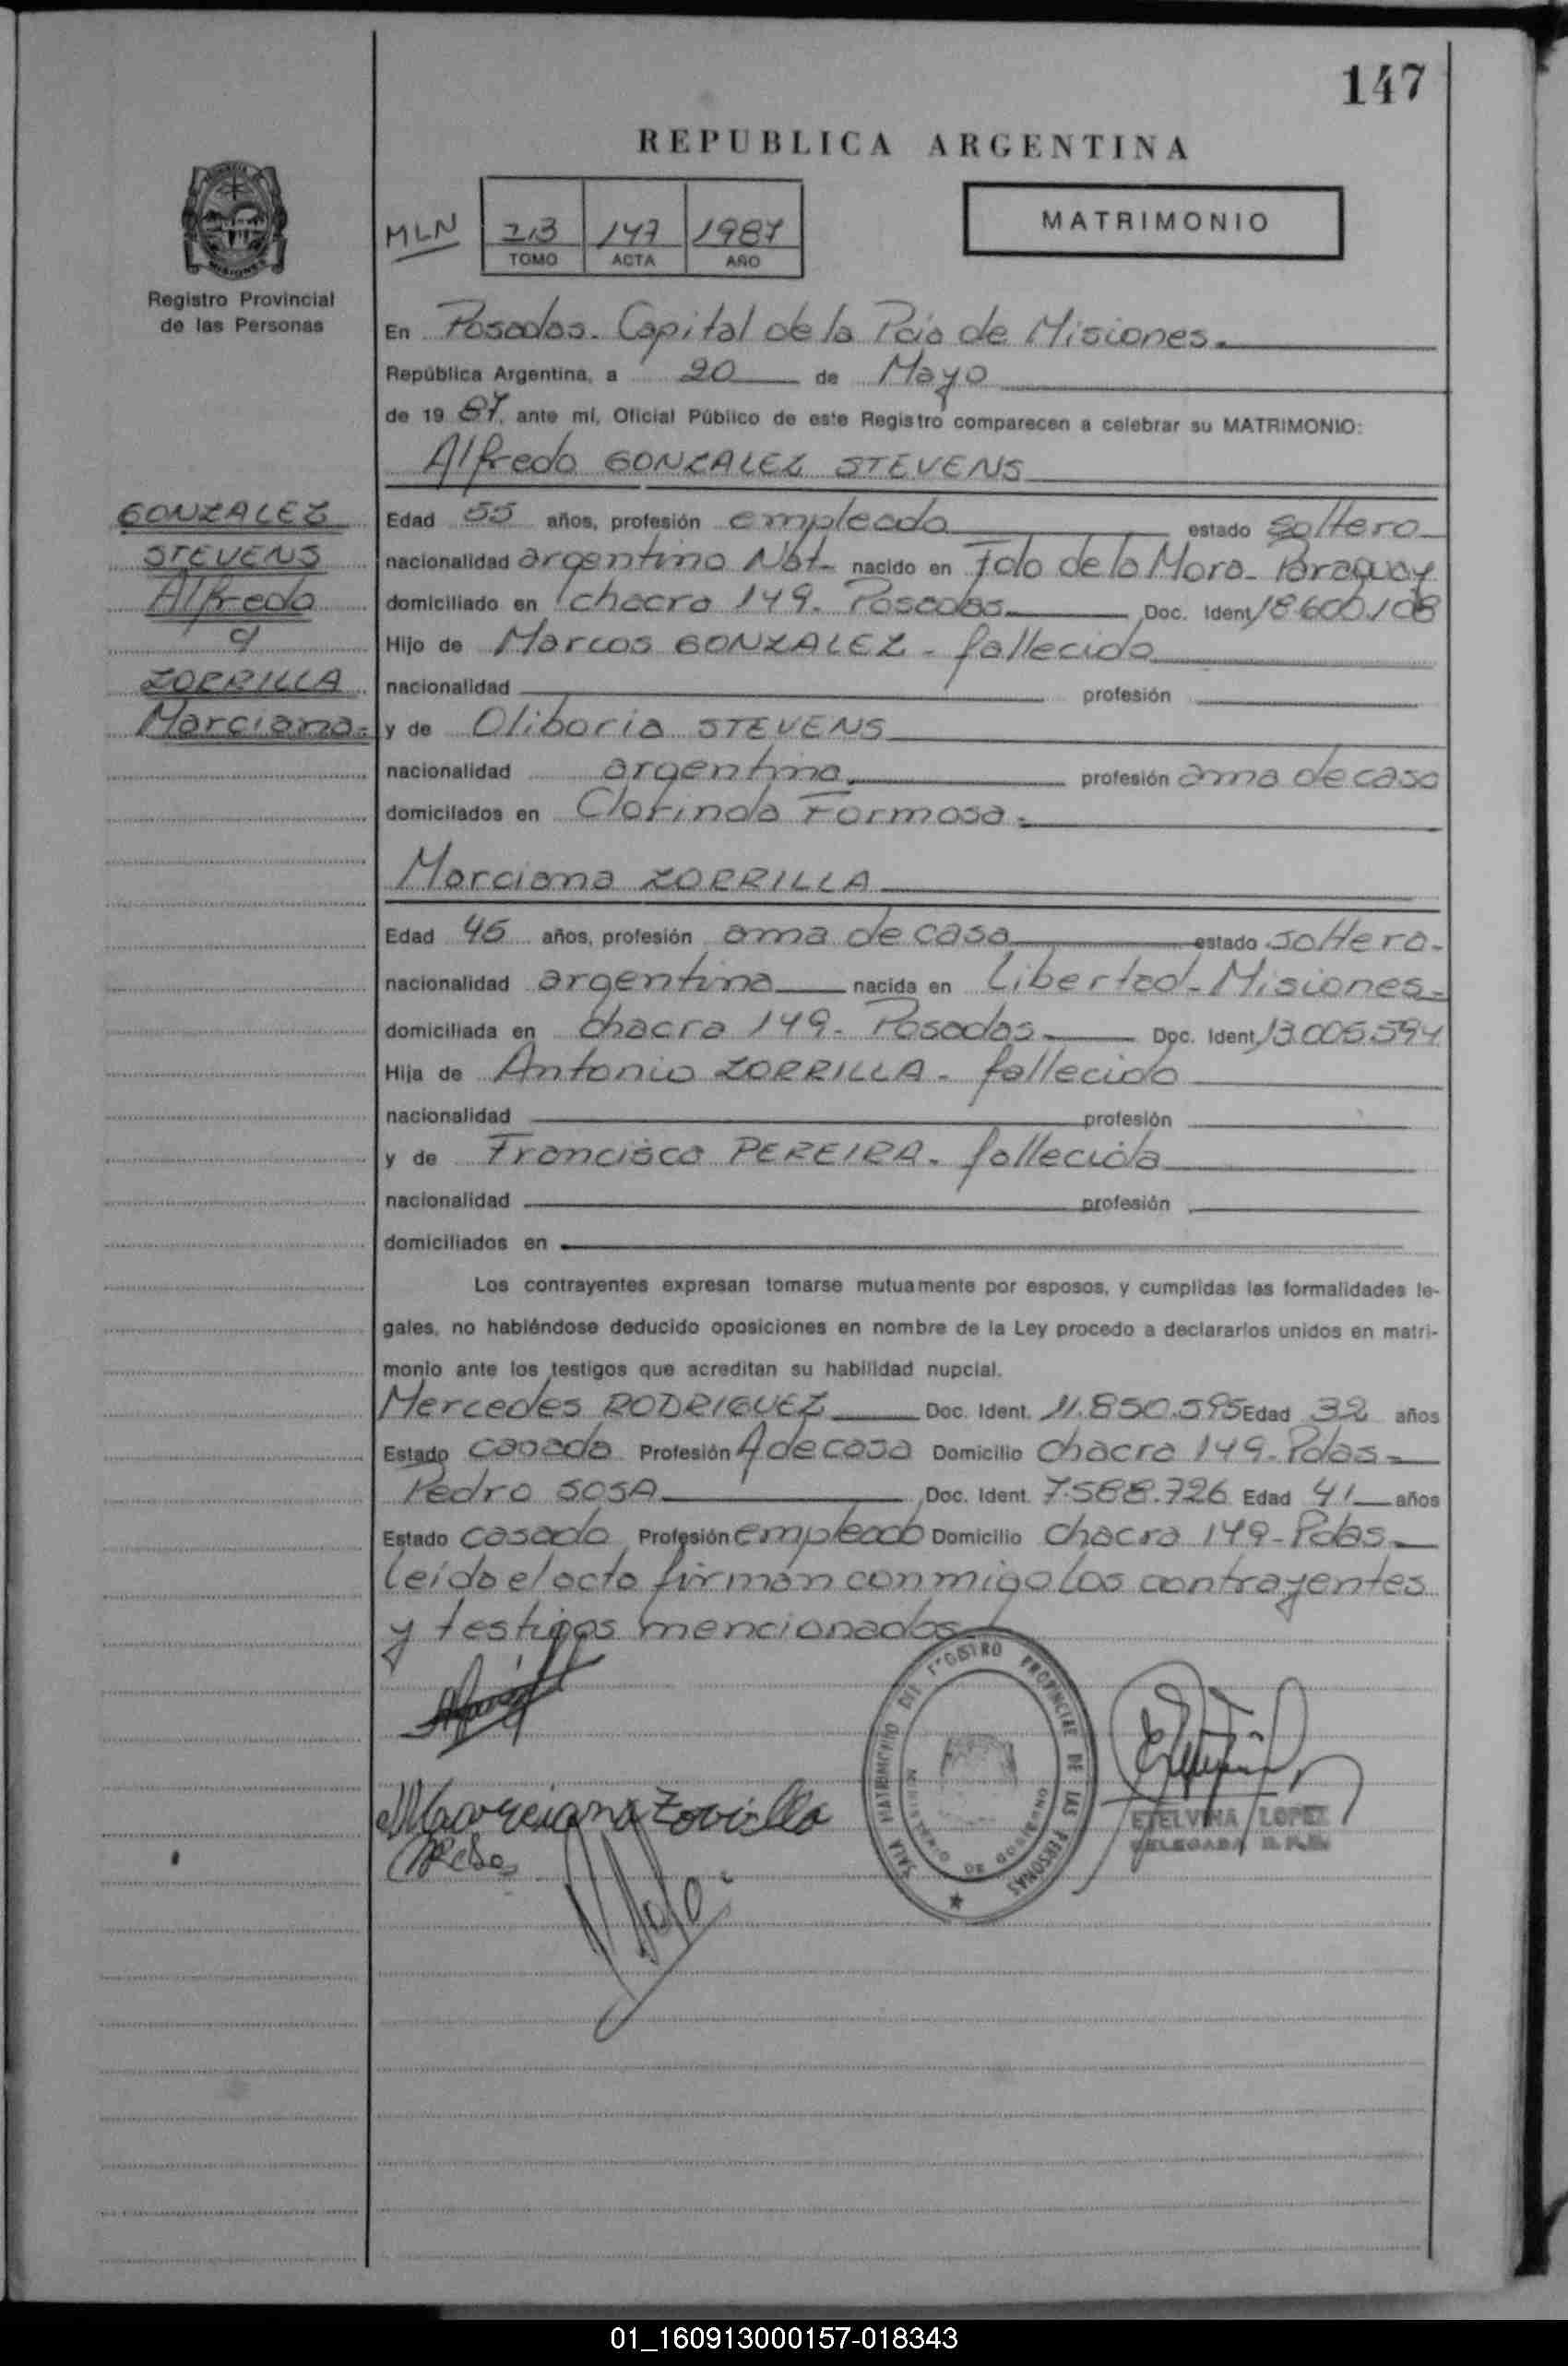 147
REPUBLICA ARGENTINA
MLN
23 147 1987
TOMO ACTA AÑO
MATRIMONIO
Registro Provincial
de las Personas
En Posadas. Capital de la Pcia de Misiones.
República Argentina, a 20 de Mayo
de 19 87, ante mí, Oficial Público de este Registro comparecen a celebrar su MATRIMONIO:
Alfredo GONZALEZ STEVENS
GONZALEZ
STEVENS
Alfredo
y
ZORRILLA
Marciana
Edad 55 años, profesión empleado estado soltero
nacionalidad argentino Nat. nacido en Fdo de la Mora - Paraguay
domiciliado en chacra 149. Posadas Doc. Ident 18.600.108
Hijo de Marcos GONZALEZ - fallecido
nacionalidad profesión
y de Oliboria STEVENS
nacionalidad argentina profesión ama de casa
domiciliados en Clorinda Formosa
Marciana ZORRILLA
Edad 45 años, profesión ama de casa estado soltera
nacionalidad argentina nacida en Libertad - Misiones
domiciliada en chacra 149 - Posadas Doc. Ident 13.005.594
Hija de Antonio ZORRILLA - fallecido
nacionalidad profesión
y de Francisca PEREIRA - fallecida
nacionalidad profesión
domiciliados en
Los contrayentes expresan tomarse mutuamente por esposos, y cumplidas las formalidades le-
gales, no habiéndose deducido oposiciones en nombre de la Ley procedo a declararlos unidos en matri-
monio ante los testigos que acreditan su habilidad nupcial.
Mercedes RODRIGUEZ Doc. Ident. 11.850.595 Edad 32 años
Estado casada Profesión A de casa Domicilio chacra 149 - Pdas
Pedro SOSA Doc. Ident. 7.588.726 Edad 41 años
Estado casado Profesión empleado Domicilio chacra 149 - Pdas
leído el acta firman conmigo los contrayentes
y testigos mencionados
SALA MATRIMONIO DEL REGISTRO PROVINCIAL DE LAS PERSONAS
MINISTERIO DE GOBIERNO
Marciana Zorrilla
ETELVINA LOPEZ
DELEGADA R.P.P.
01_160913000157-018343